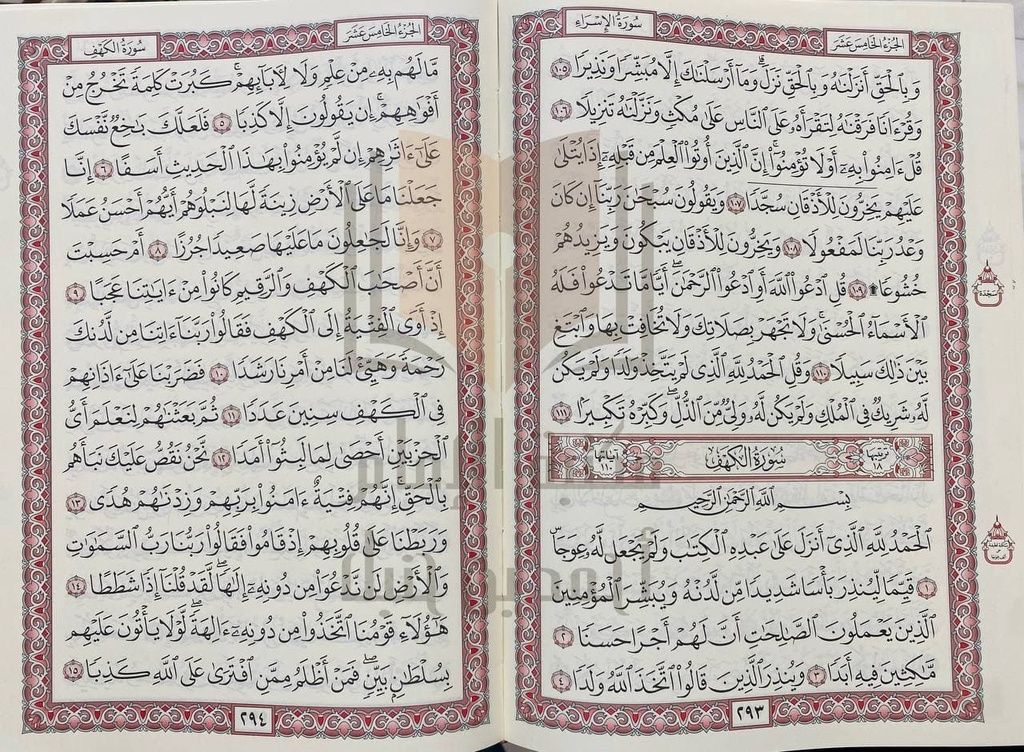 الجزء الخامس عشر
سورة الإسراء
وَبِٱلْحَقِّ أَنزَلْنَٰهُ وَبِٱلْحَقِّ نَزَلَۗ وَمَآ أَرْسَلْنَٰكَ إِلَّا مُبَشِّرًا وَنَذِيرًا ١٠٥
وَقُرْءَانًا فَرَقْنَٰهُ لِتَقْرَأَهُۥ عَلَى ٱلنَّاسِ عَلَىٰ مُكْثٍ وَنَزَّلْنَٰهُ تَنزِيلًا ١٠٦
قُلْ ءَامِنُوا۟ بِهِۦٓ أَوْ لَا تُؤْمِنُوٓا۟ۚ إِنَّ ٱلَّذِينَ أُوتُوا۟ ٱلْعِلْمَ مِن قَبْلِهِۦٓ إِذَا يُتْلَىٰ
عَلَيْهِمْ يَخِرُّونَ لِلْأَذْقَانِ سُجَّدًا ١٠٧ وَيَقُولُونَ سُبْحَٰنَ رَبِّنَآ إِن كَانَ
وَعْدُ رَبِّنَا لَمَفْعُولًا ١٠٨ وَيَخِرُّونَ لِلْأَذْقَانِ يَبْكُونَ وَيَزِيدُهُمْ
خُشُوعًا۩ ١٠٩ قُلِ ٱدْعُوا۟ ٱللَّهَ أَوِ ٱدْعُوا۟ ٱلرَّحْمَٰنَۖ أَيًّا مَّا تَدْعُوا۟ فَلَهُ
ٱلْأَسْمَآءُ ٱلْحُسْنَىٰۚ وَلَا تَجْهَرْ بِصَلَاتِكَ وَلَا تُخَافِتْ بِهَا وَٱبْتَغِ
بَيْنَ ذَٰلِكَ سَبِيلًا ١١٠ وَقُلِ ٱلْحَمْدُ لِلَّهِ ٱلَّذِى لَمْ يَتَّخِذْ وَلَدًا وَلَمْ يَكُن
لَّهُۥ شَرِيكٌ فِى ٱلْمُلْكِ وَلَمْ يَكُن لَّهُۥ وَلِىٌّ مِّنَ ٱلذُّلِّۖ وَكَبِّرْهُ تَكْبِيرًۢا ١١١
ترتيبها ١٨ سورة الكهف آياتها ١١٠
بِسْمِ ٱللَّهِ ٱلرَّحْمَٰنِ ٱلرَّحِيمِ
ٱلْحَمْدُ لِلَّهِ ٱلَّذِىٓ أَنزَلَ عَلَىٰ عَبْدِهِ ٱلْكِتَٰبَ وَلَمْ يَجْعَل لَّهُۥ عِوَجَاۜ
١ قَيِّمًا لِّيُنذِرَ بَأْسًا شَدِيدًا مِّن لَّدُنْهُ وَيُبَشِّرَ ٱلْمُؤْمِنِينَ
ٱلَّذِينَ يَعْمَلُونَ ٱلصَّٰلِحَٰتِ أَنَّ لَهُمْ أَجْرًا حَسَنًا ٢
مَّٰكِثِينَ فِيهِ أَبَدًا ٣ وَيُنذِرَ ٱلَّذِينَ قَالُوا۟ ٱتَّخَذَ ٱللَّهُ وَلَدًا ٤
٢٩٣
سجدة
الجزء الخامس عشر
سورة الكهف
مَّا لَهُم بِهِۦ مِنْ عِلْمٍ وَلَا لِءَابَآئِهِمْۚ كَبُرَتْ كَلِمَةً تَخْرُجُ مِنْ
أَفْوَٰهِهِمْۚ إِن يَقُولُونَ إِلَّا كَذِبًا ٥ فَلَعَلَّكَ بَٰخِعٌ نَّفْسَكَ
عَلَىٰٓ ءَاثَٰرِهِمْ إِن لَّمْ يُؤْمِنُوا۟ بِهَٰذَا ٱلْحَدِيثِ أَسَفًا ٦ إِنَّا
جَعَلْنَا مَا عَلَى ٱلْأَرْضِ زِينَةً لَّهَا لِنَبْلُوَهُمْ أَيُّهُمْ أَحْسَنُ عَمَلًا
٧ وَإِنَّا لَجَٰعِلُونَ مَا عَلَيْهَا صَعِيدًا جُرُزًا ٨ أَمْ حَسِبْتَ
أَنَّ أَصْحَٰبَ ٱلْكَهْفِ وَٱلرَّقِيمِ كَانُوا۟ مِنْ ءَايَٰتِنَا عَجَبًا ٩
إِذْ أَوَى ٱلْفِتْيَةُ إِلَى ٱلْكَهْفِ فَقَالُوا۟ رَبَّنَآ ءَاتِنَا مِن لَّدُنكَ
رَحْمَةً وَهَيِّئْ لَنَا مِنْ أَمْرِنَا رَشَدًا ١٠ فَضَرَبْنَا عَلَىٰٓ ءَاذَانِهِمْ
فِى ٱلْكَهْفِ سِنِينَ عَدَدًا ١١ ثُمَّ بَعَثْنَٰهُمْ لِنَعْلَمَ أَىُّ
ٱلْحِزْبَيْنِ أَحْصَىٰ لِمَا لَبِثُوٓا۟ أَمَدًا ١٢ نَّحْنُ نَقُصُّ عَلَيْكَ نَبَأَهُم
بِٱلْحَقِّۚ إِنَّهُمْ فِتْيَةٌ ءَامَنُوا۟ بِرَبِّهِمْ وَزِدْنَٰهُمْ هُدًى ١٣
وَرَبَطْنَا عَلَىٰ قُلُوبِهِمْ إِذْ قَامُوا۟ فَقَالُوا۟ رَبُّنَا رَبُّ ٱلسَّمَٰوَٰتِ
وَٱلْأَرْضِ لَن نَّدْعُوَا۟ مِن دُونِهِۦٓ إِلَٰهًاۖ لَّقَدْ قُلْنَآ إِذًا شَطَطًا ١٤
هَٰٓؤُلَآءِ قَوْمُنَا ٱتَّخَذُوا۟ مِن دُونِهِۦٓ ءَالِهَةًۖ لَّوْلَا يَأْتُونَ عَلَيْهِم
بِسُلْطَٰنٍۭ بَيِّنٍۖ فَمَنْ أَظْلَمُ مِمَّنِ ٱفْتَرَىٰ عَلَى ٱللَّهِ كَذِبًا ١٥
٢٩٤